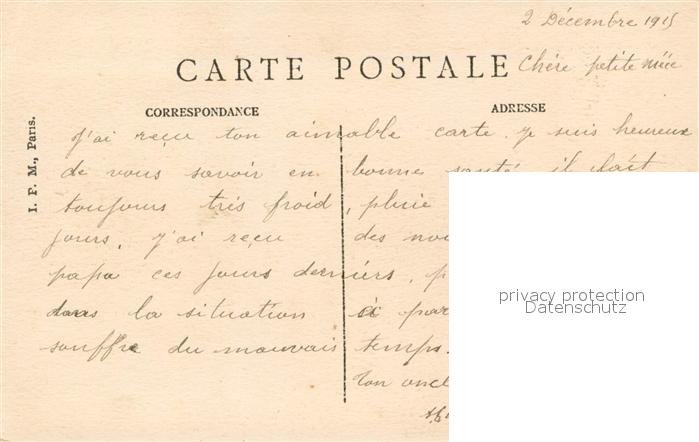 2 Décembre 1915
CARTE POSTALE
Chère petite
CORRESPONDANCE
ADRESSE
I. P. M., Paris.
J'ai reçu ton aimable carte. Je suis heureux
de vous savoir en bonne santé. il fait
toujours très froid, pluie
jours. J'ai reçu des nou
papa ces jours derniers, p
dans la situation si par
souffre du mauvais temps.
Ton oncl
privacy protection
Datenschutz